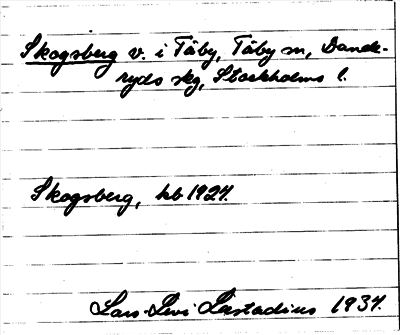 Skogsberg v. i Täby, Täby sn, Dande-
ryds skg, Stockholms l.
Skogsberg, hb 1927.
Lars-Levi Læstadius 1937.